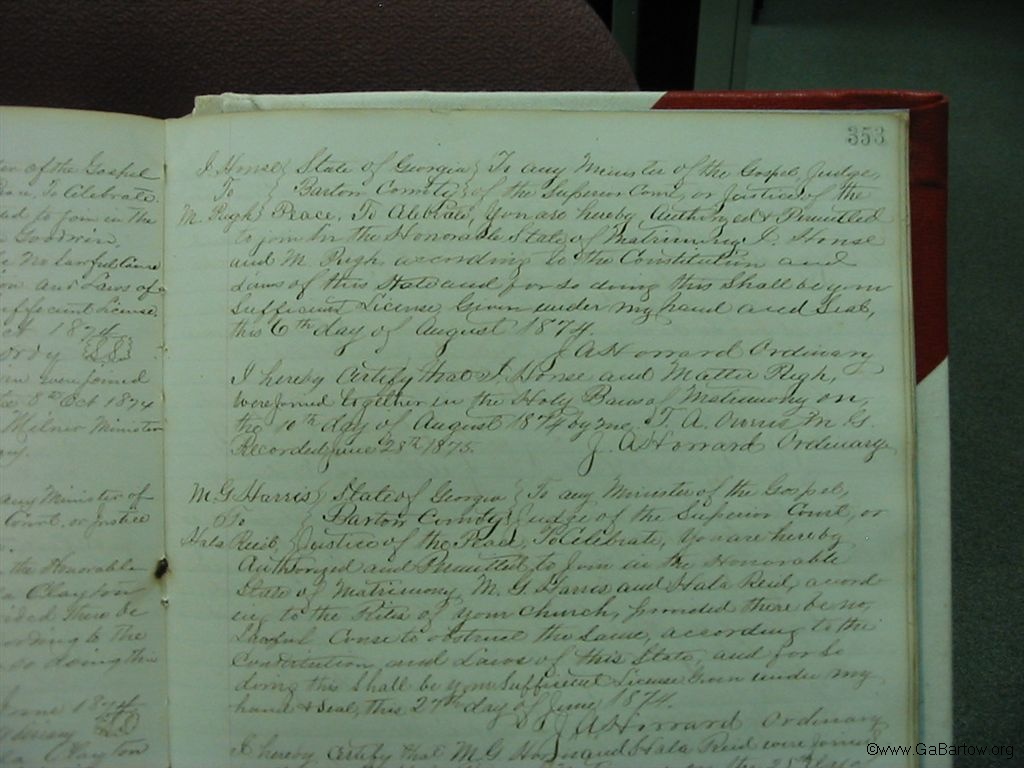 of the Gospel
To Celebrate
to join in the
Goodwin,
no Lawful Cause
and Laws of
sufficient License
1874
were joined
8th Oct 1874
Milner Minister
any Minister of
Court, or Justice
the Honorable
Clayton
there be
according to the
so doing this
June 1874
Clayton
353
J. House State of Georgia To any Minister of the Gospel, Judge,
To Bartow County of the Superior Court, or Justice of the
M. Pugh Peace. To Celebrate, You are hereby Authorized & Permitted
to join in the Honorable State of Matrimony J. House
and M. Pugh according to the Constitution and
Laws of this State and for so doing this Shall be your
Sufficient License Given under my hand and Seal,
this 6th day of August 1874.
J A Howard Ordinary
I hereby Certify that J. House and Mattie Pugh,
were joined together in the Holy Bans of Matrimony on,
the 10th day of August 1874 by me, T. A. Owens M. G.
Recorded June 28th 1875. J. A Howard Ordinary
M. G. Harris State of Georgia To any Minister of the Gospel,
To Bartow County Judge of the Superior Court, or
Hala Reid, Justice of the Peace, To Celebrate, you are hereby
Authorized and Permitted to Join in the Honorable
State of Matrimony M. G. Harris and Hala Reid, accord
ing to the Rites of your Church, provided there be no,
Lawful Cause to obstruct the Same, according to the
Constitution, and Laws of this State, and for So
doing this Shall be your Sufficient License Given under my
hand & Seal, this 27th day of June, 1874.
J A Howard Ordinary
I hereby Certify that M. G. and Hala Reid were Joined
©www.GaBartow.org